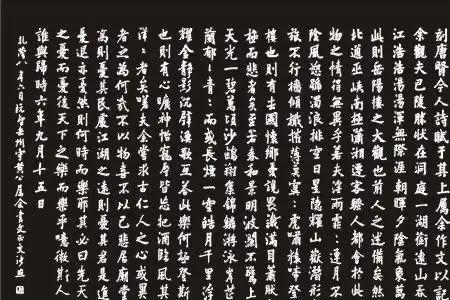 刻唐賢今人詩賦于其上屬余作文以記
余觀夫巴陵勝狀在洞庭一湖銜遠山吞
江浩浩湯湯渾無際涯朝暉夕陰氣象萬
此則岳陽樓之大觀也前人之述備矣然
北通巫峽南極瀟湘遷客騷人都會於此
物之情得無異乎若夫淫雨霏霏連月不
陰風怒號濁浪排空日星隱耀山嶽潛形
旅不行檣傾楫摧薄暮冥冥虎嘯猿啼登
樓也則有去國懷鄉憂讒畏譏滿目蕭然
極而悲者矣至若春和景明波瀾不驚上
天光一碧萬頃沙鷗翔集錦鱗游泳岸芷
蘭郁〻青〻而或長煙一空皓月千里浮
耀金靜影沉璧漁歌互答此樂何極登斯
也則有心曠神怡寵辱皆忘把酒臨風其
洋〻者矣嗟夫余嘗求古仁人之心或異
者之為何哉不以物喜不以己悲居廟堂
高則憂其民處江湖之遠則憂其君是進
憂退亦憂然則何時而樂耶其必曰先天
之憂而憂後天下之樂而樂乎噫微斯人
誰與歸時六年九月十五日